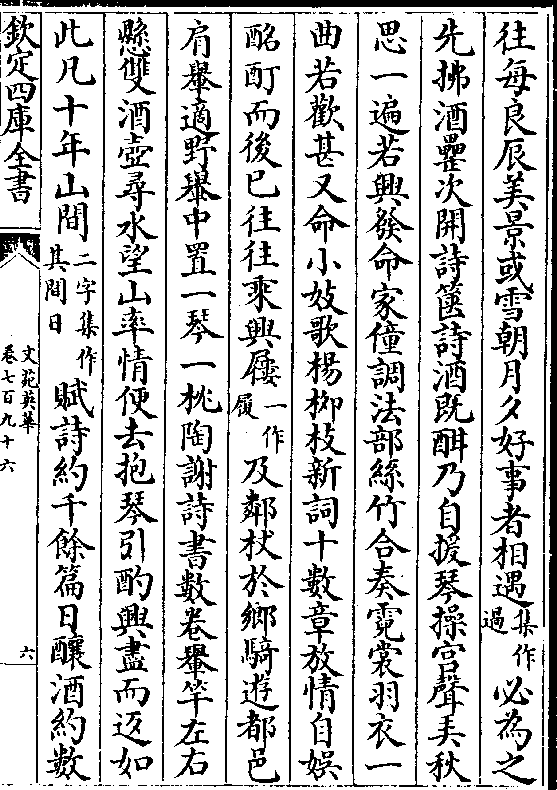 往每良辰美景或雪朝月夕好事者相遇集作過必為之
先拂酒罍次開詩篋詩酒既酣乃自援琴操宮聲弄秋
思一遍若興發命家僮調法部絲竹合奏霓裳羽衣一
曲若歡甚又命小妓歌楊柳枝新詞十數章放情自娛
酩酊而後已往往乘興屨一作履及鄰杖於鄉騎遊都邑
肩舉適野舉中置一琴一枕陶謝詩書數卷舉竿左右
懸雙酒壺尋水望山率情便去抱琴引酌興盡而返如
此凡十年山間二字集作其間日賦詩約千餘篇日釀酒約數
欽定四庫全書
文苑英華
卷七百九十六
六